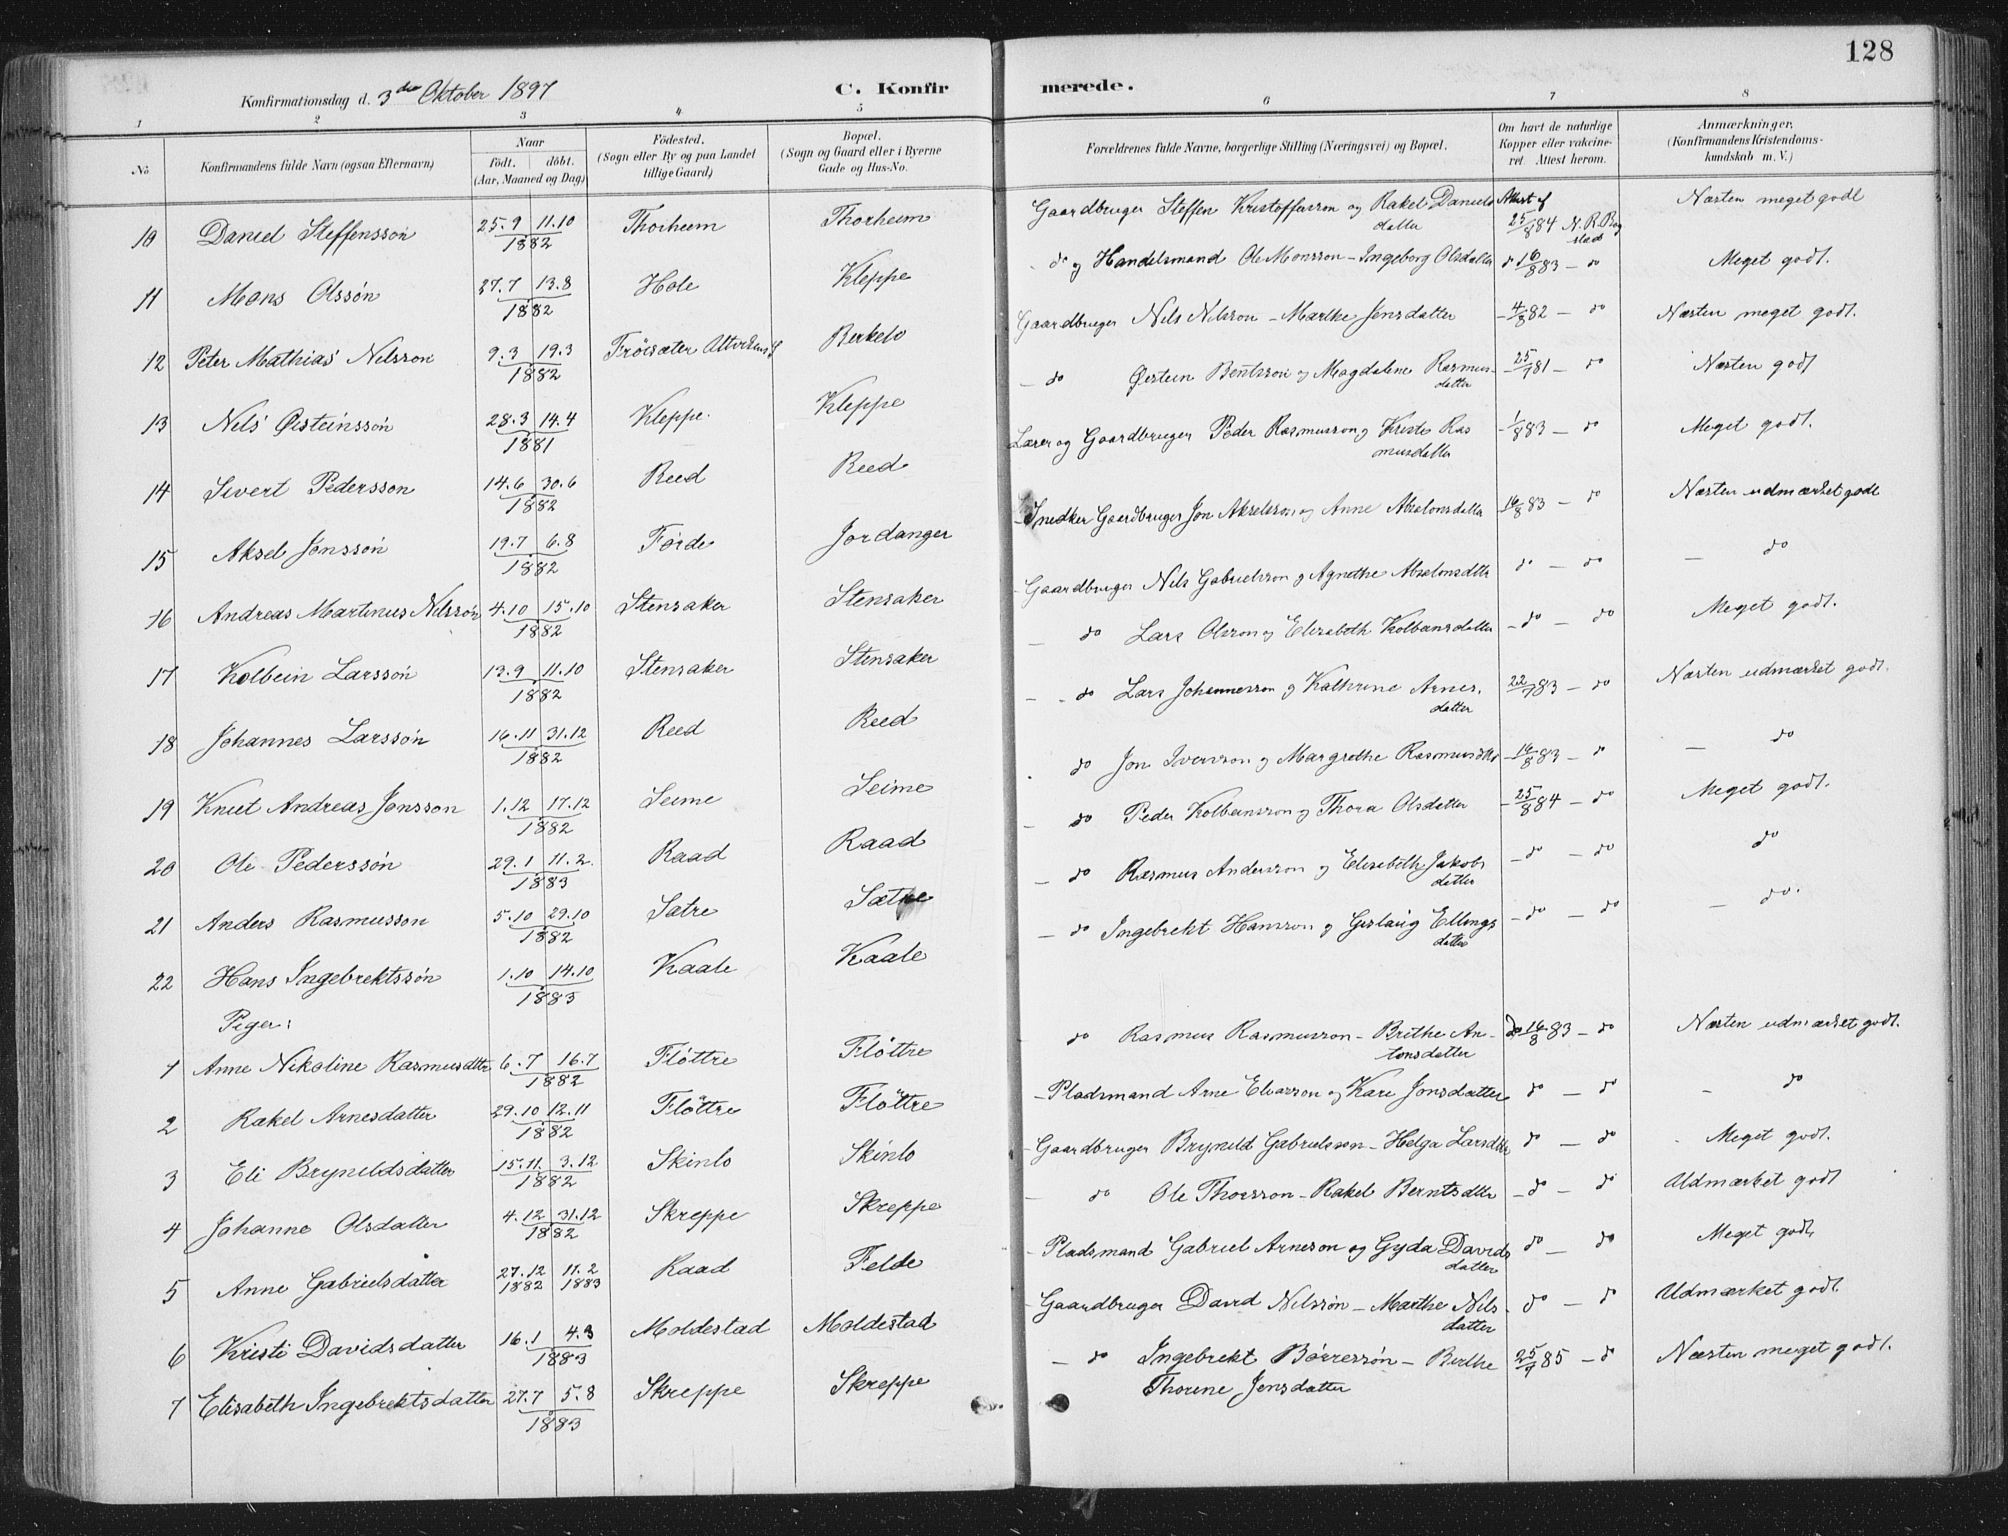 128
Konfirmationsdag d. 3die Oktober 1897
C. Konfirmerede.
1 2 3 4 5 6 7 8
No. Konfirmandens fulde Navn (ogsaa Efternavn) Naar Födt. döbt. (Aar, Maaned og Dag) Födested. (Sogn eller By og paa Landet tillige Gaard) Bopæl. (Sogn og Gaard eller i Byerne Gade og Hus-No. Forældrenes fulde Navne, borgerlige Stilling (Næringsvei) og Bopæl. Om havt de naturlige Kopper eller vakcineret. Attest herom. Anmærkninger. (Konfirmandens Kristendomskundskab m. V.)
10 Daniel Steffenssøn 25.9 11.10 1882 Thorheim Thorheim Gaardbruger Steffen Kristofferson og Rakel Daniels datter Attest af 25/8 84 Næsten meget godt
11 Mons Olssøn 27.7 13.8 1882 Hole Kleppe do og Handelsmand Ole Monsson - Ingeborg Olsdatter do 16/8 83 - do Meget godt.
12 Peter Mathias Nilsson 9.3 19.3 1882 Berkelo Gaardbruger Nils Nilsson - Marthe Jensdatter - 4/8 82 - do Næsten meget godt.
13 Nils Øisteinssøn 28.3 14.4 1881 Kleppe. Kleppe - do Øistein Bentsson og Magdalene Rasmusdatter 25/7 81 - do Næsten godt
14 Sivert Pedersson 14.6 30.6 1882 Reed Reed Lærer og Gaardbruger Peder Rasmusson og Kristi Rasmusdatter - 1/8 83 - do Meget godt.
15 Aksel Jonssøn 19.7 6.8 1882 Førde Jordanger Snedker Gaardbruger Jon Akselsson og Anne Absalonsdatter - 16/8 83 - do Næsten udmærket godt
16 Andreas Martinus Nilssøn 4.10 15.10 1882 Stensaker Stensaker Gaardbruger Nils Gabrielsson og Agnethe Absalonsdtr do - do - do
17 Kolbein Larssøn 13.9 11.10 1882 Stensaker Stensaker - do Lars Olsson og Elisabeth Kolbensdatter - do - do Meget godt.
18 Johannes Larssøn 16.11 31.12 1882 Reed Reed - do Lars Johannesson og Kathrine Arnesdatter 22/7 83 - do Næsten udmærket godt.
19 Knut Andreas Jonsson 1.12 17.12 1882 Seime Seime do Jon Iversson og Margrethe Rasmusdtr - 16/8 83 - do - do
20 Ole Pederssøn 29.1 11.2. 1883 Raad Raad - do Peder Kolbeinsson og Thora Olsdatter - 25/8 84 - do Meget godt.
21 Anders Rasmusson 5.10 29.10 1882 Sætre Sætre - do Rasmus Andersson og Elisabeth Jakobsdatter - do - do do
22 Hans Ingebrektssøn 1.10 14.10 1883 Kaale Kaale - do Ingebrekt Hansson og Gislaug Ellingsdatter - do - do - do.
Piger:
1 Anne Nikoline Rasmusdtter 6.7 16.7 1882 Fløttre Fløttre do Rasmus Rasmusson - Brithe Antonsdatter do 16/8 83 - do Næsten udmærket godt.
2 Rakel Arnesdatter 29.10 12.11 1882 Fløttre Fløttre - Pladsmand Arne Eliasson og Kari Jonsdatter do - do - do
3 Eli Brynildsdatter 15.11. 3.12 1882 Skinlo Skinlo - Gaardbruger Brynild Gabrielsson - Helga Larsdtr do - do Meget godt.
4 Johanne Olsdatter 4.12 31.12 1882 Skreppe Skreppe - do Ole Thorsson - Rakel Berntsdtr - do - do Udmærket godt
5 Anne Gabrielsdatter 27.12 1882 11.2 1883 Raad Felde - Pladsmand Gabriel Arneson og Gyda Davidsdatter do - do Meget godt.
6 Kristi Davidsdatter 16.1 4.3 1883 Moldestad Moldestad - Gaardbruger David Nilssøn - Marthe Nilsdatter - do - do Udmærket godt.
7 Elisabeth Ingebrektsdatter 27.7 5.8 1883 Skreppe Skreppe - do Ingebrekt Børressøn - Berthe Thorine Jensdatter 25/9 85 - do Næsten meget godt.